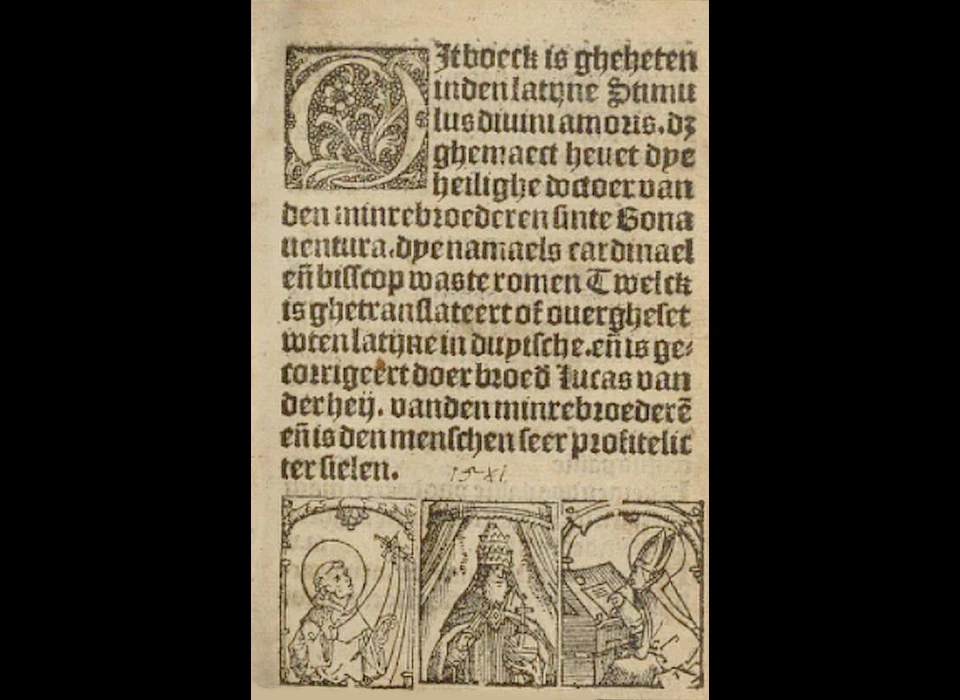 DJt boeck is gheheten
inden latijne Stimu
lus diuini amoris. dʒ
ghemaect heuet dye
heilighe doctoer van
den minrebroederen sinte Bona
uentura. dye namaels cardinael
eñ bisscop was te romen Twelck
is ghetranslateert of ouergheset
wten latijne in duytsche. eñ is ge⸗
corrigeert doer broeđ Lucas van
der heij. vanden minrebroederē
eñ is den menschen seer profitelic
ter sielen.